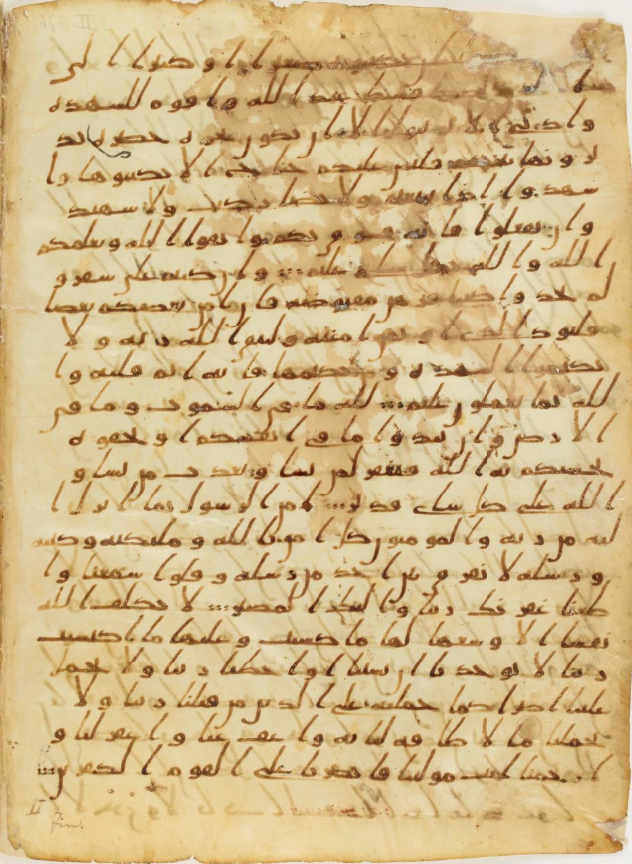 تكتبوه صغيرا او كبيرا الى
اقسط عند الله واقوم للشهده
وادنى الا ترتابوا الا ان تكون تجره حضره تد
يرونها بينكم فليس عليكم جناح الا تكتبوها وا
شهدوا اذا تبايعتم ولا يضار كتب ولا شهيد
وان تفعلوا فانه فسوق بكم واتقوا الله ويعلمكم
الله والله بكل شى عليم وان كنتم على سفر و
لم تجدوا كتبا فرهن مقبوضه فان امن بعضكم بعضا
فليود الذى اوتمن امنته وليتق الله ربه ولا
تكتموا الشهده ومن يكتمها فانه اثم قلبه وا
لله بما تعملون عليم لله ما فى السموت وما فى
الارض وان تبدوا ما فى انفسكم او تخفوه
يحسبكم به الله فيغفر لمن يشا ويعذب من يشا و
الله على كل شى قدير امن الرسول بما انزل ا
ليه من ربه والمومنون كل امن بالله وملئكته وكتبه
ورسله لا نفرق بين احد من رسله وقلوا سمعنا وا
طعنا غفرنك ربنا واليك المصير لا يكلف الله
نفسا الا وسعها لها ما كسبت وعليها ما اكتسبت
ربنا لا توخذنا ان نسينا او اخطانا ربنا ولا تحمل
علينا اصرا كما حملته على الذين من قبلنا ربنا ولا
تحملنا ما لا طاقه لنا به واعف عنا واغفر لنا و
ارحمنا انت مولينا فانصرنا على القوم الكفرين